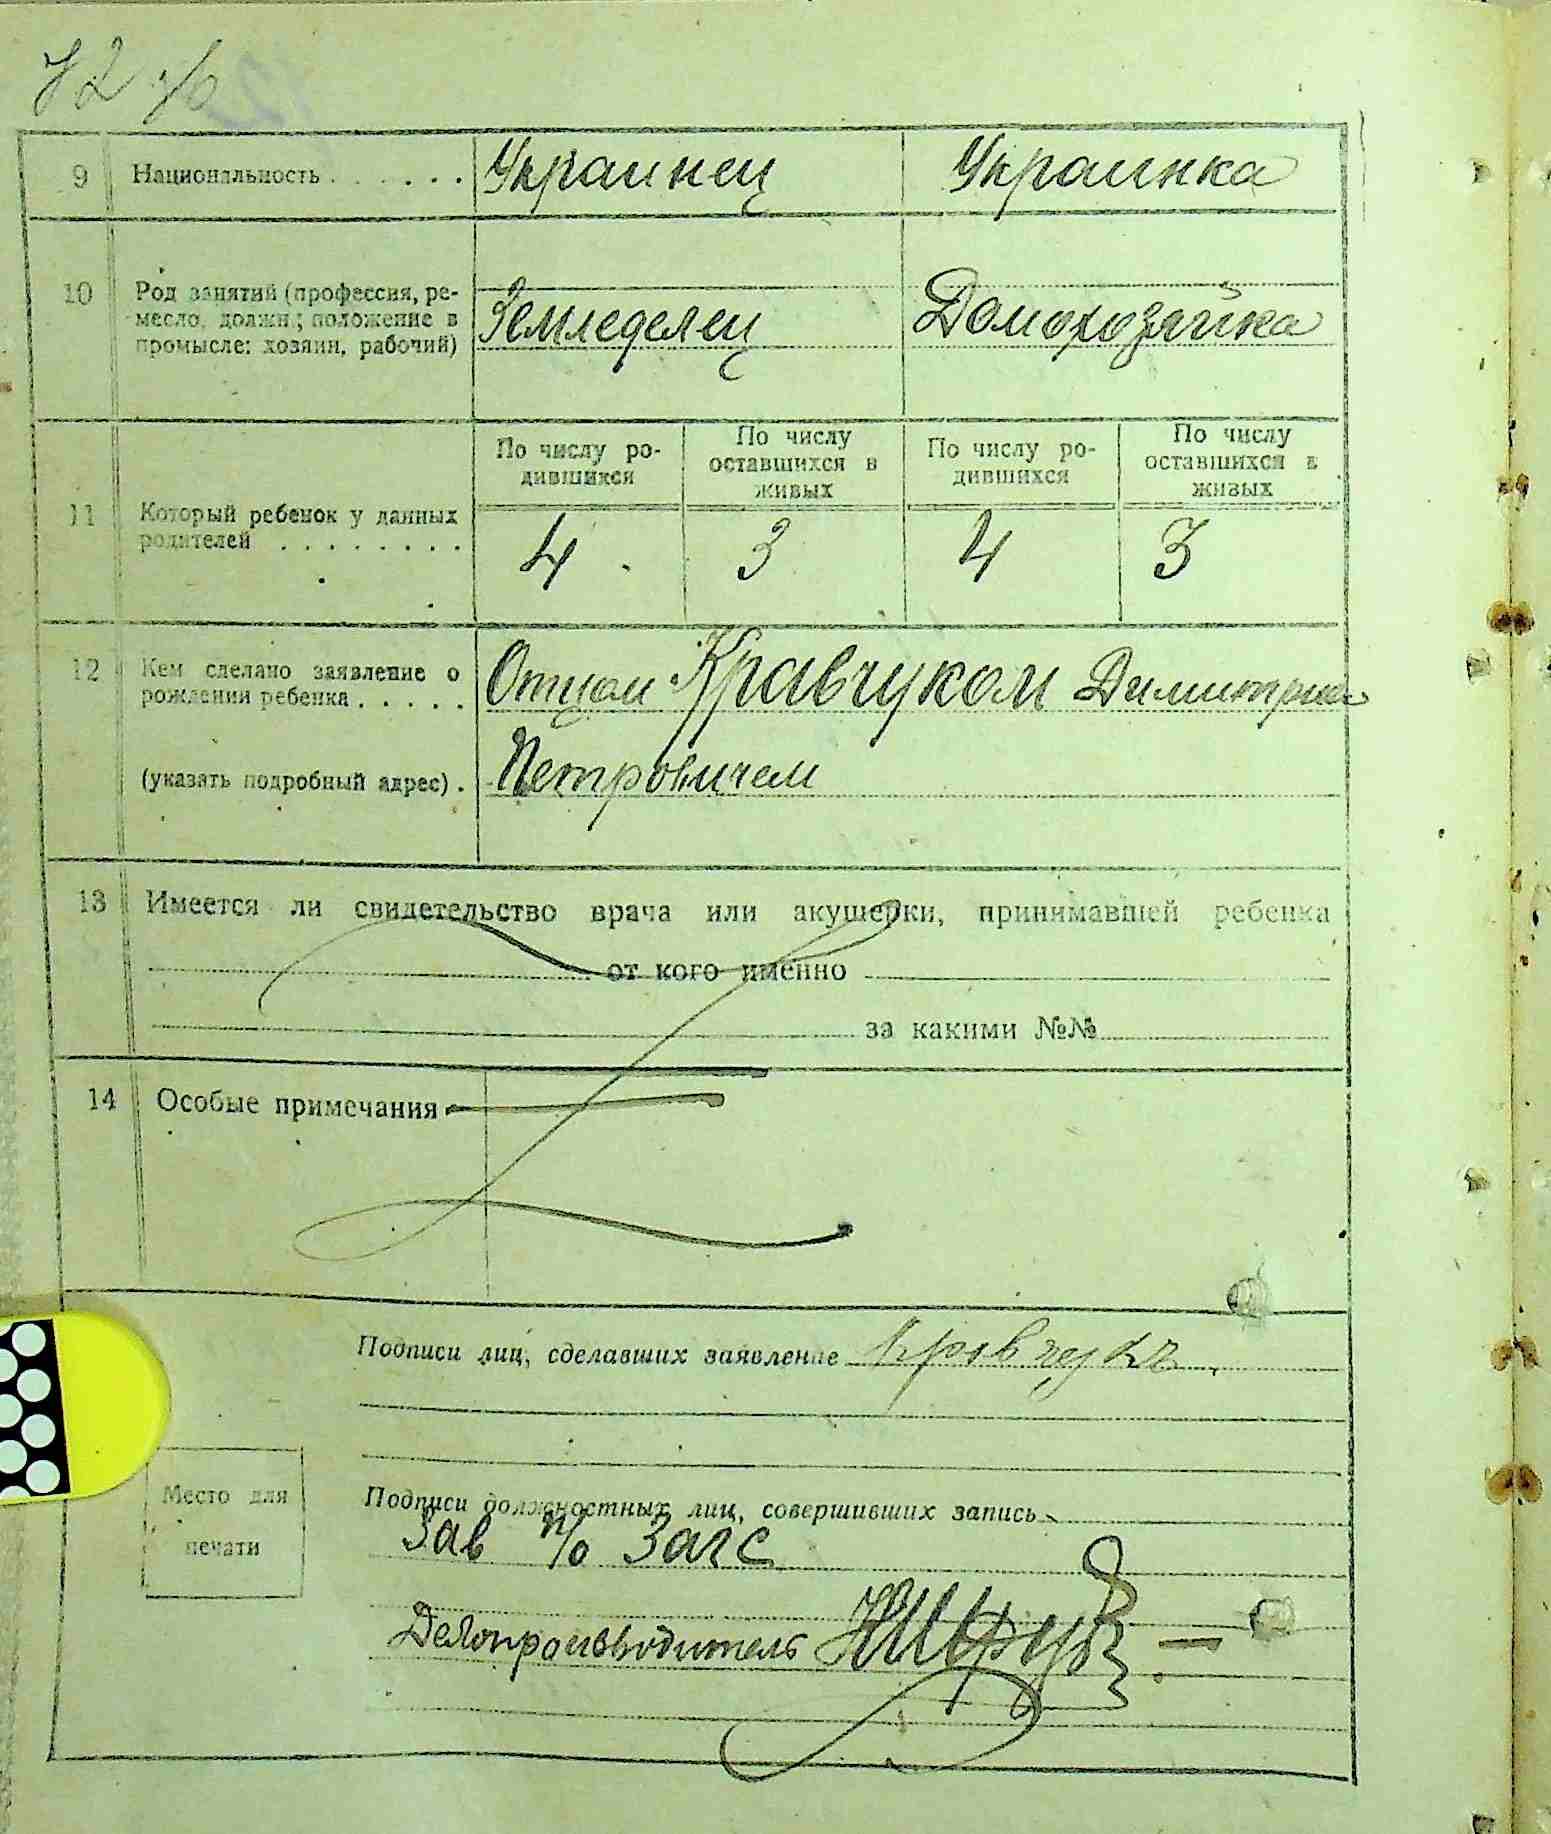 72 об
9 Национальность . . . . . . Украинец Украинка
10 Род занятий (профессия, ре-
месло, должн.; положение в
промысле: хозяин, рабочий) Земледелец Домохозяйка
По числу ро-
дившихся
По числу
оставшихся в
живых
По числу ро-
дившихся
По числу
оставшихся в
живых
11 Который ребенок у данных
родителей . . . . . . . . 4 3 4 3
12 Кем сделано заявление о
рождении ребенка . . . . . Отцом Кравчуком Димитрием
(указать подробный адрес) . Петровичем
13 Имеется ли свидетельство врача или акушерки, принимавшей ребенка
от кого именно
за какими №№
14 Особые примечания
Подписи лиц, сделавших заявление Кравчук
Место для
печати
Подписи должностных лиц, совершивших запись
Зав п/о Загс
Делопроизводитель